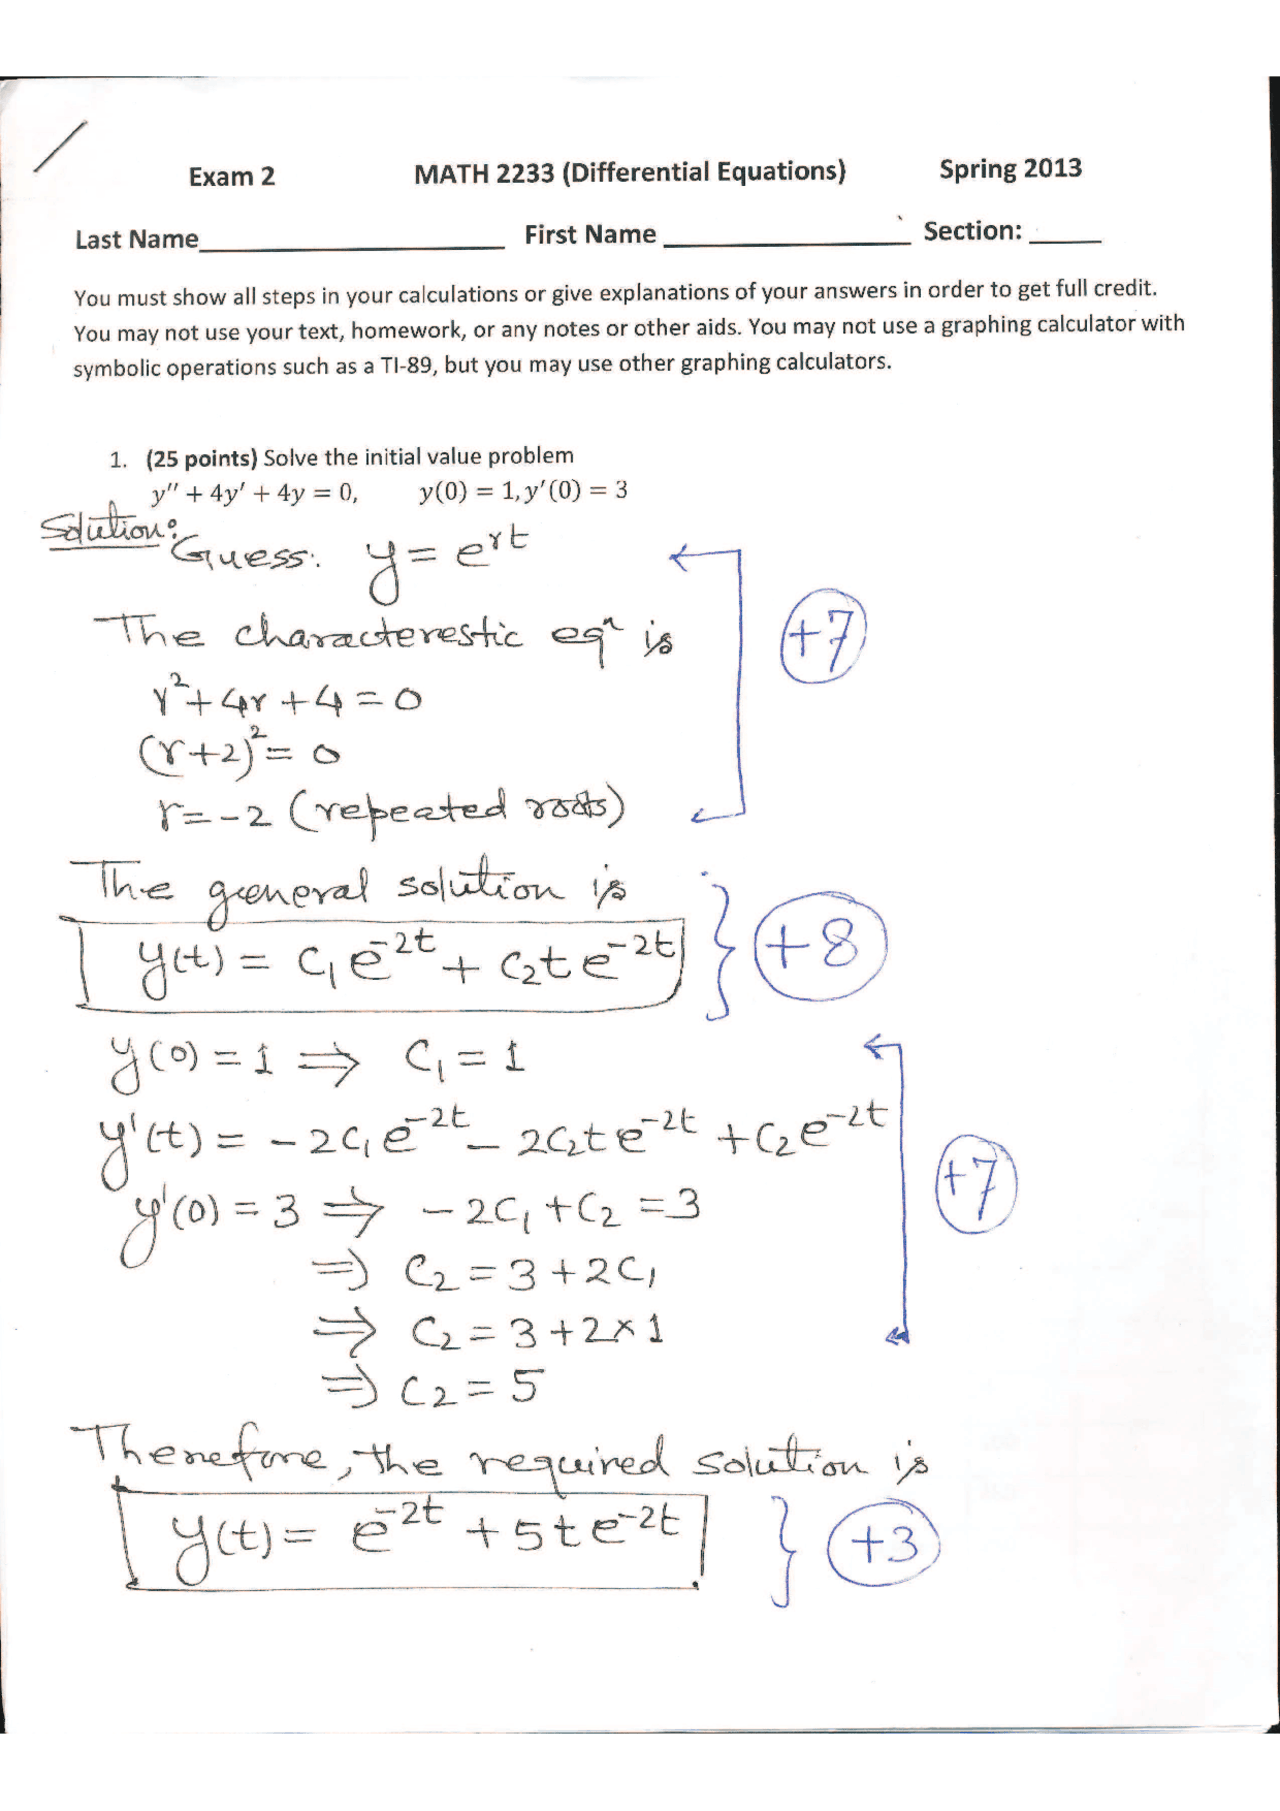 Exam 2 MATH 2233 (Differential Equations) Spring 2013
Last Name First Name Section:
You must show all steps in your calculations or give explanations of your answers in order to get full credit.
You may not use your text, homework, or any notes or other aids. You may not use a graphing calculator with
symbolic operations such as a TI-89, but you may use other graphing calculators.
1. (25 points) Solve the initial value problem
y'' + 4y' + 4y = 0, y(0) = 1, y'(0) = 3
Solution:
Guess: y = e^{rt}
The characterestic eqⁿ is
+7
r² + 4r + 4 = 0
(r+2)² = 0
r = -2 (repeated roots)
The general solution is
y(t) = c₁e^{-2t} + c₂te^{-2t} +8
y(0) = 1 ⇒ c₁ = 1
y'(t) = -2c₁e^{-2t} - 2c₂te^{-2t} + c₂e^{-2t}
+7
y'(0) = 3 ⇒ -2c₁ + c₂ = 3
⇒ c₂ = 3 + 2c₁
⇒ c₂ = 3 + 2×1
⇒ c₂ = 5
Therefore, the required solution is
y(t) = e^{-2t} + 5te^{-2t} +3